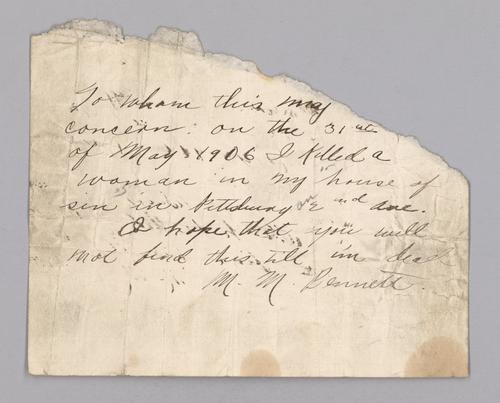 To whom this may
concern: on the 31st
of May 1906 I killed a
woman in my house of
sin in Pittsburg on 2nd ave.
I hope that you will
not find this till im dead
M. M. Bennett.